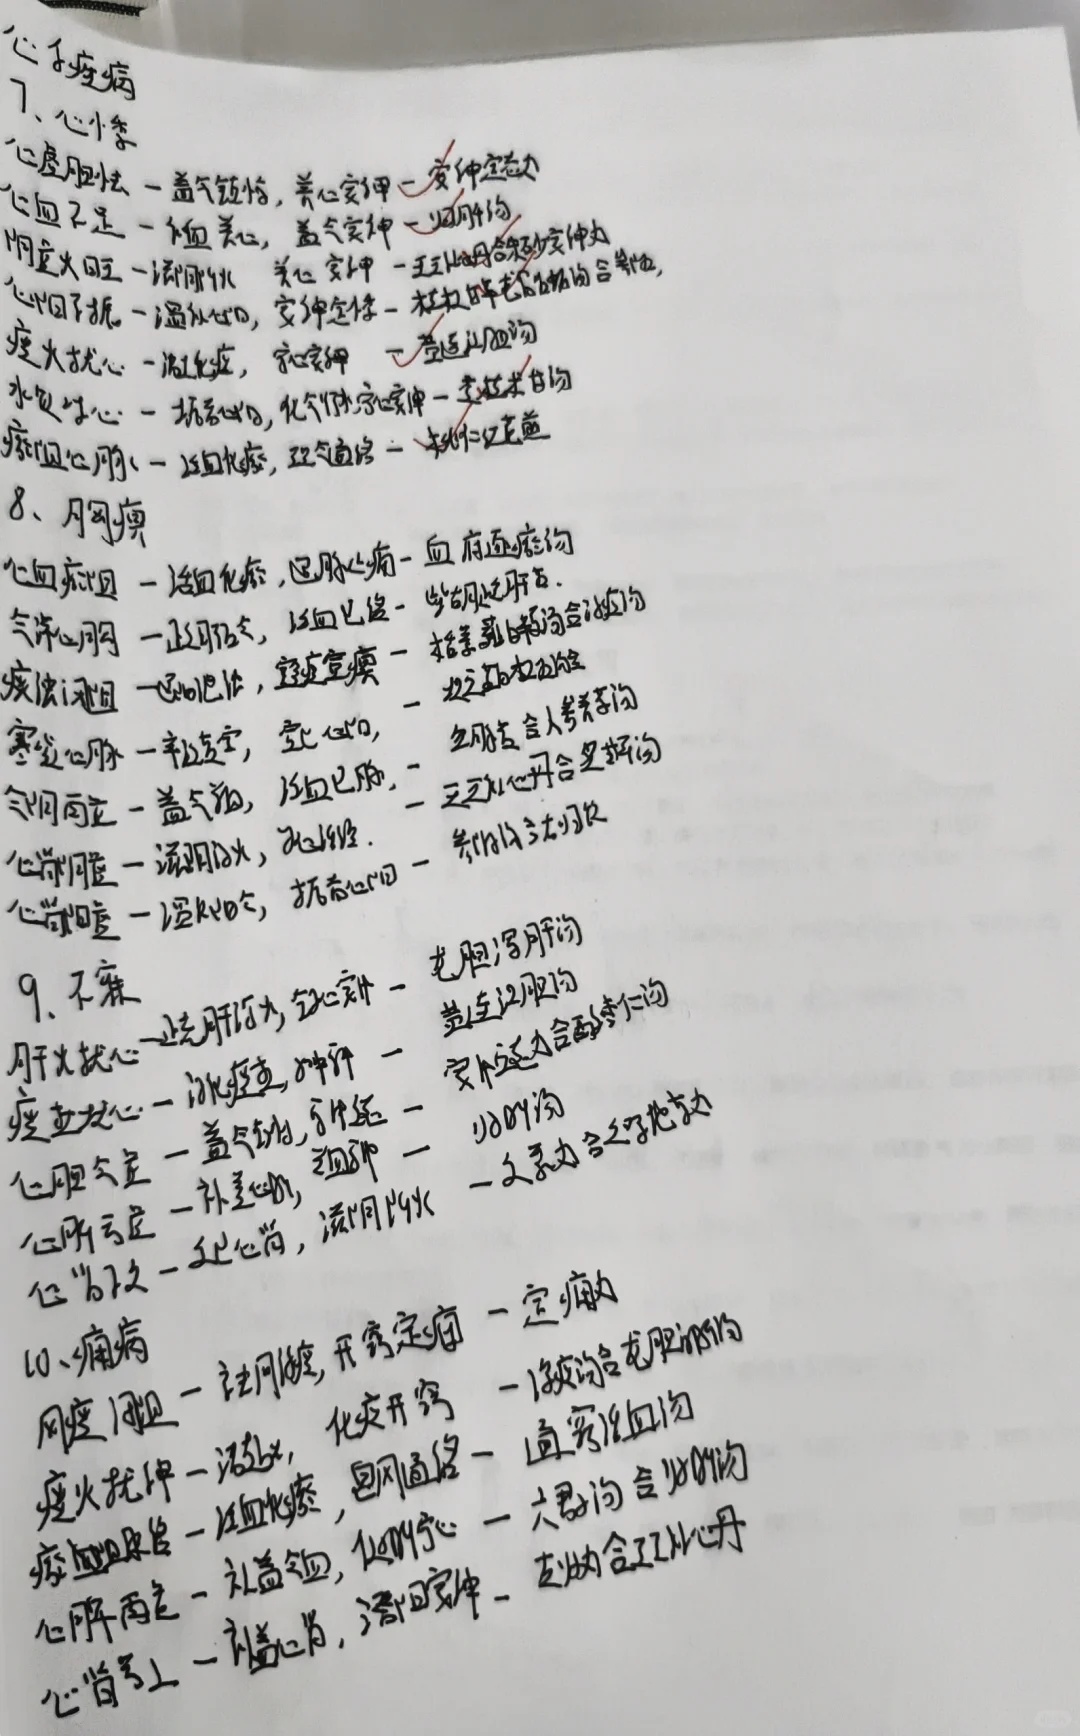 心系疾病
7、心悸
心虚胆怯 — 益气镇惊，养心安神 — 安神定志丸
心血不足 — 补血养心，益气安神 — 归脾汤
阴虚火旺 — 滋阴降火 养心安神 — 天王补心丹合朱砂安神丸
心阳不振 — 温补心阳，安神定悸 — 桂枝甘草龙骨牡蛎汤合参附汤
痰火扰心 — 清热化痰，宁心安神 — 黄连温胆汤
水饮凌心 — 振奋心阳，化气行水，宁心安神 — 苓桂术甘汤
瘀阻心脉 — 活血化瘀，理气通络 — 桃仁红花煎
8、胸痹
心血瘀阻 — 活血化瘀，通脉止痛 — 血府逐瘀汤
气滞心胸 — 疏肝理气，活血通络 — 柴胡疏肝散
痰浊闭阻 — 通阳泄浊，豁痰宣痹 — 栝蒌薤白半夏汤合涤痰汤
寒凝心脉 — 辛温散寒，宣通心阳 —
气阴两虚 — 益气养阴，活血通脉 — 生脉散合人参养荣汤
心肾阴虚 — 滋阴清火，养心和络 — 天王补心丹合炙甘草汤
心肾阳虚 — 温补阳气，振奋心阳 — 参附汤合右归饮
9、不寐
肝火扰心 — 疏肝泻火，镇心安神 — 龙胆泻肝汤
痰热扰心 — 清化痰热，和中安神 — 黄连温胆汤
心胆气虚 — 益气镇惊，安神定志 — 安神定志丸合酸枣仁汤
心脾两虚 — 补益心脾，养血安神 — 归脾汤
心肾不交 — 交通心肾，滋阴降火 — 交泰丸合六味地黄丸
10、痫病
风痰闭阻 — 涤痰息风，开窍定痫 — 定痫丸
痰火扰神 — 清热泻火，化痰开窍 — 涤痰汤合龙胆泻肝汤
瘀阻脑络 — 活血化瘀，息风通络 — 通窍活血汤
心脾两虚 — 补益气血，健脾宁心 — 六君子汤合归脾汤
心肾亏虚 — 补益心肾，潜阳安神 — 左归丸合天王补心丹